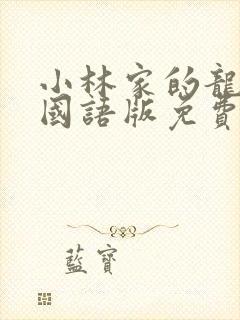 小林家的龍
國語版免費
藍寶